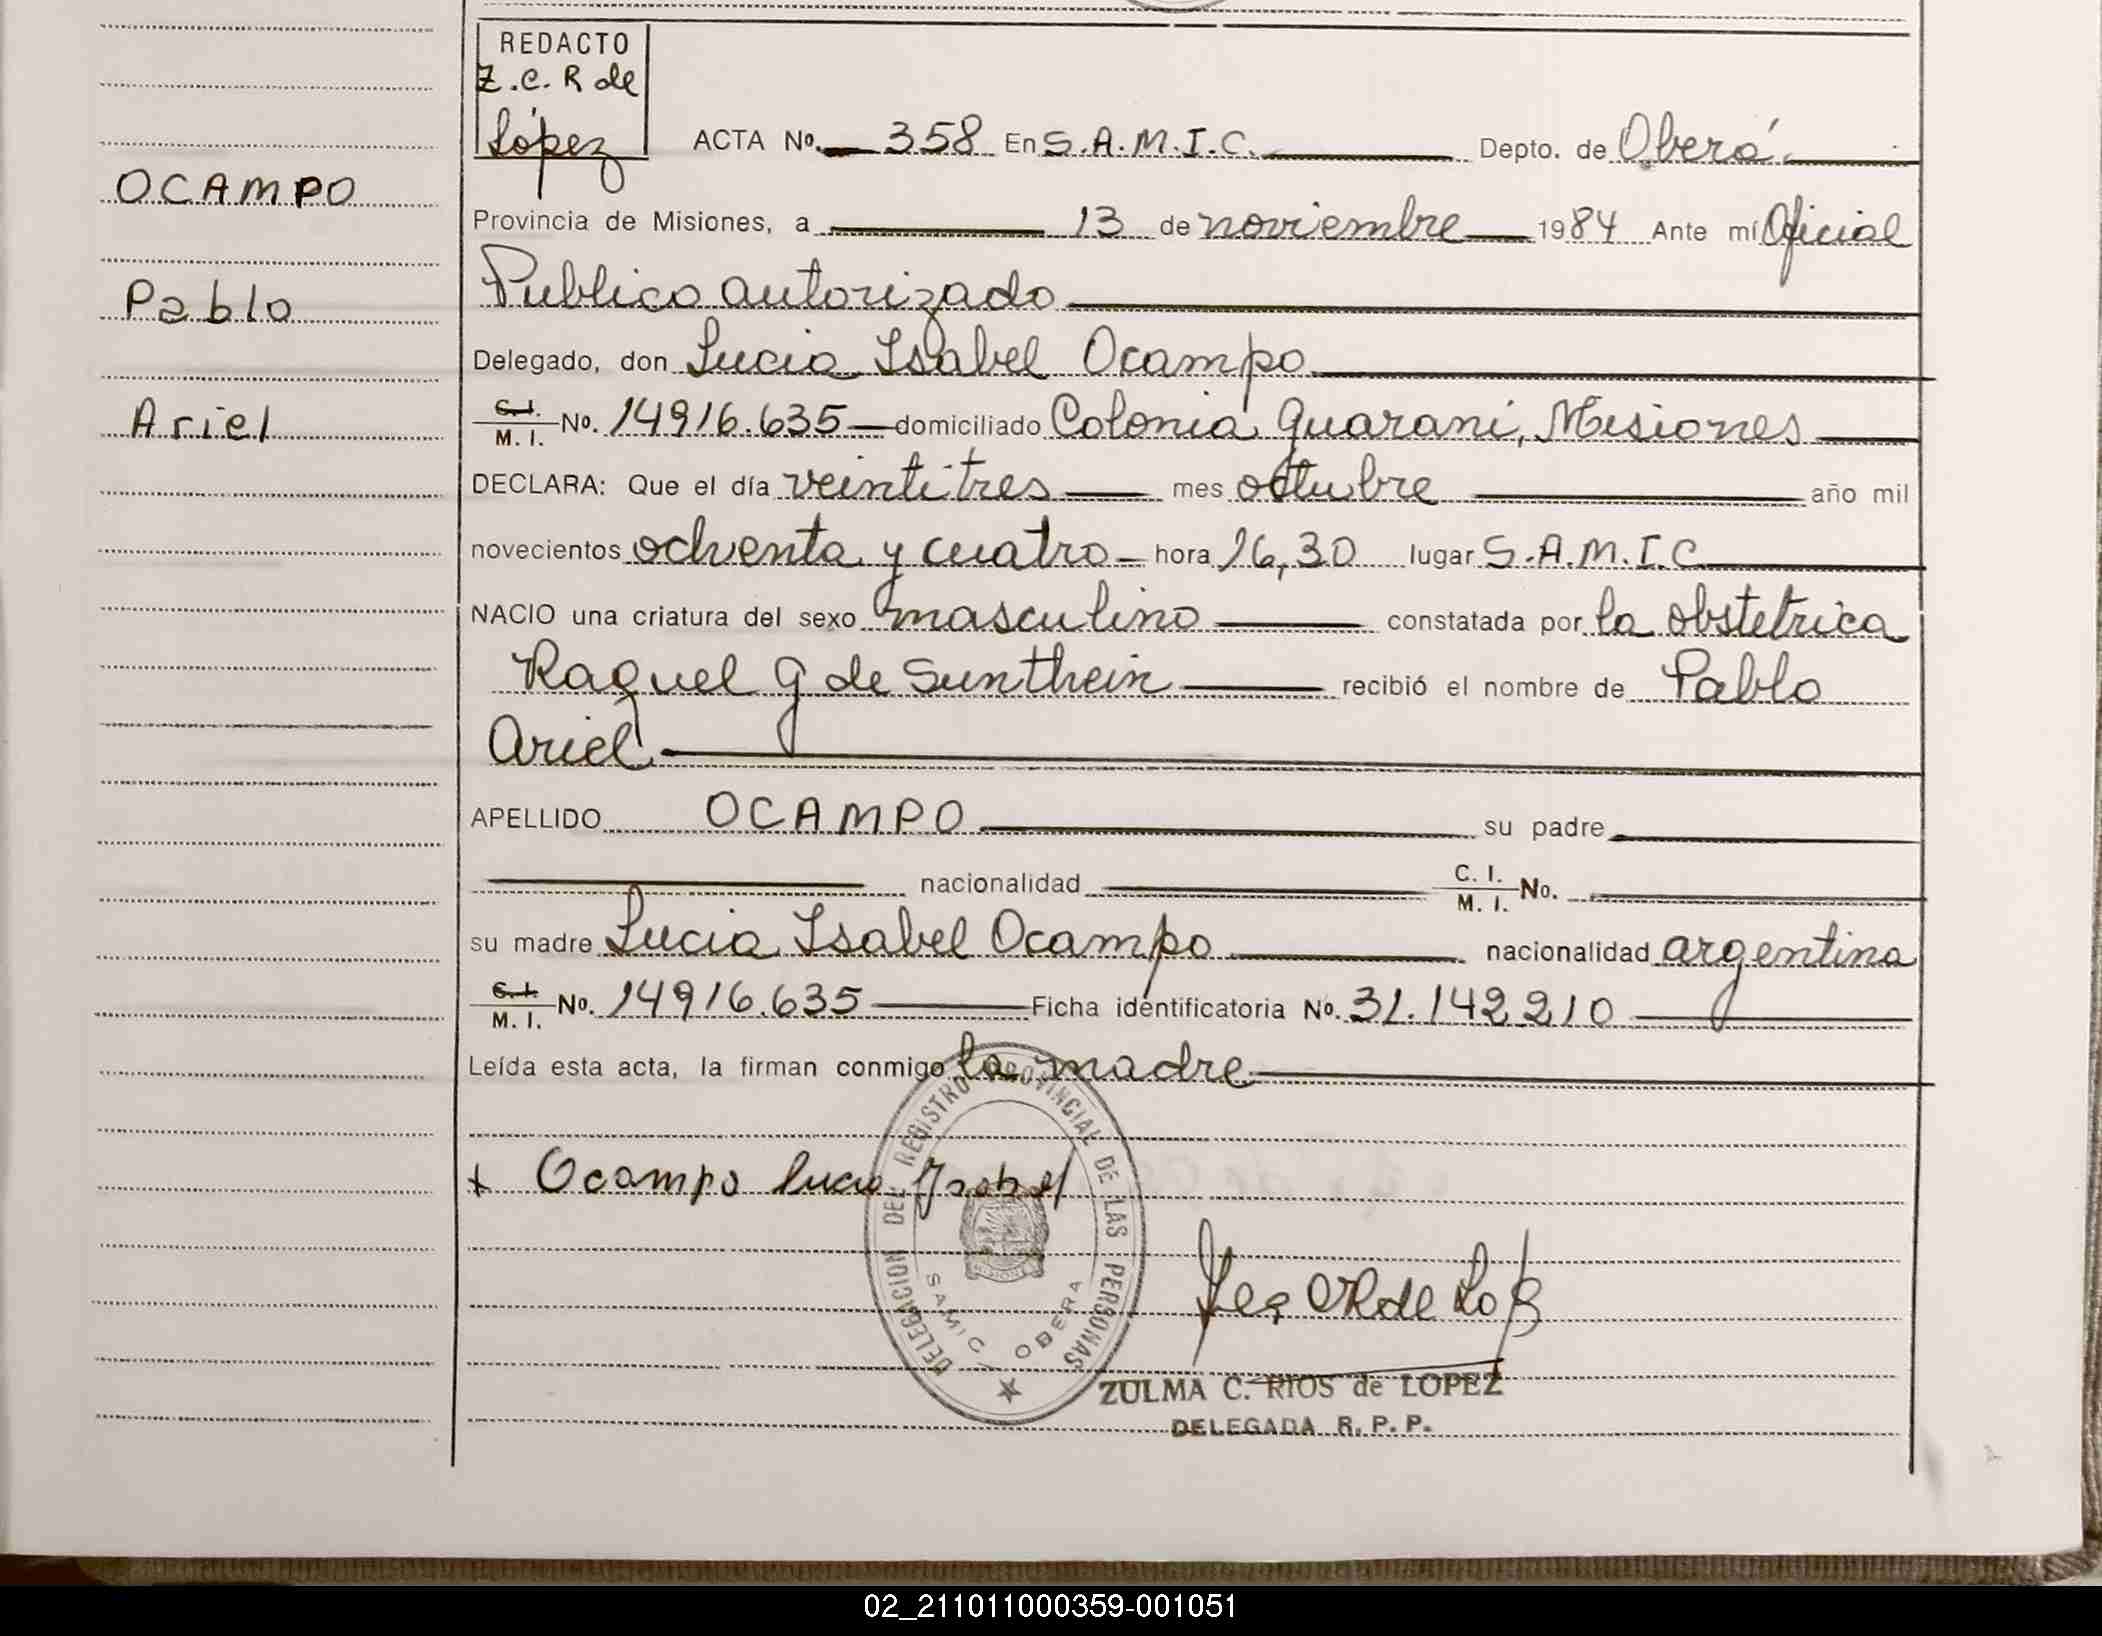 REDACTO
Z.C.R de
López
ACTA No. 358 En S.A.M.I.C. Depto. de Oberá
OCAMPO
Provincia de Misiones, a 13 de noviembre 1984 Ante mí Oficial
Publico autorizado
Pablo
Delegado, don Lucia Isabel Ocampo
Ariel
C.I. M.I. No. 14916.635 domiciliado Colonia Guaraní, Misiones
DECLARA: Que el día veintitres mes octubre año mil
novecientos ochenta y cuatro hora 16,30 lugar S.A.M.I.C
NACIO una criatura del sexo masculino constatada por la obstetrica
Raquel G de Sunthein recibió el nombre de Pablo
Ariel
APELLIDO OCAMPO su padre
nacionalidad C.I. M.I. No.
su madre Lucia Isabel Ocampo nacionalidad argentina
C.I. M.I. No. 14916.635 Ficha identificatoria No. 31.142.210
Leída esta acta, la firman conmigo la madre
+ Ocampo Lucia Ysabel
DELEGACION DEL REGISTRO PROVINCIAL DE LAS PERSONAS
MISIONES
SAMIC / OBERA
ZULMA C. RIOS de LOPEZ
DELEGADA R.P.P.
02_211011000359-001051